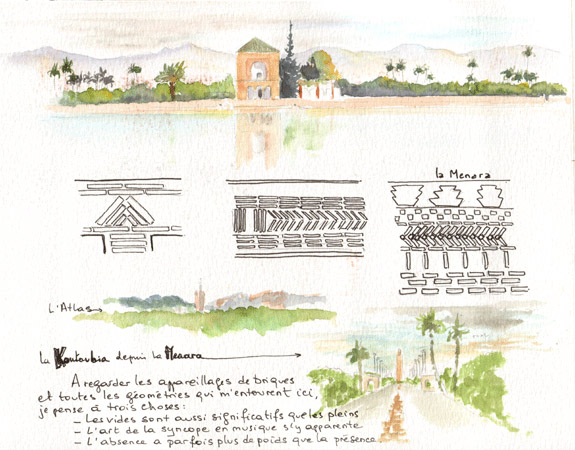 la Menara
L'Atlas
La Koutoubia depuis la Menara
A regarder les appareillages de briques
et toutes les géométries qui m'entourent ici,
je pense à trois choses :
- Les vides sont aussi significatifs que les pleins
- L'art de la syncope en musique s'y apparente
- L'absence a parfois plus de poids que la présence